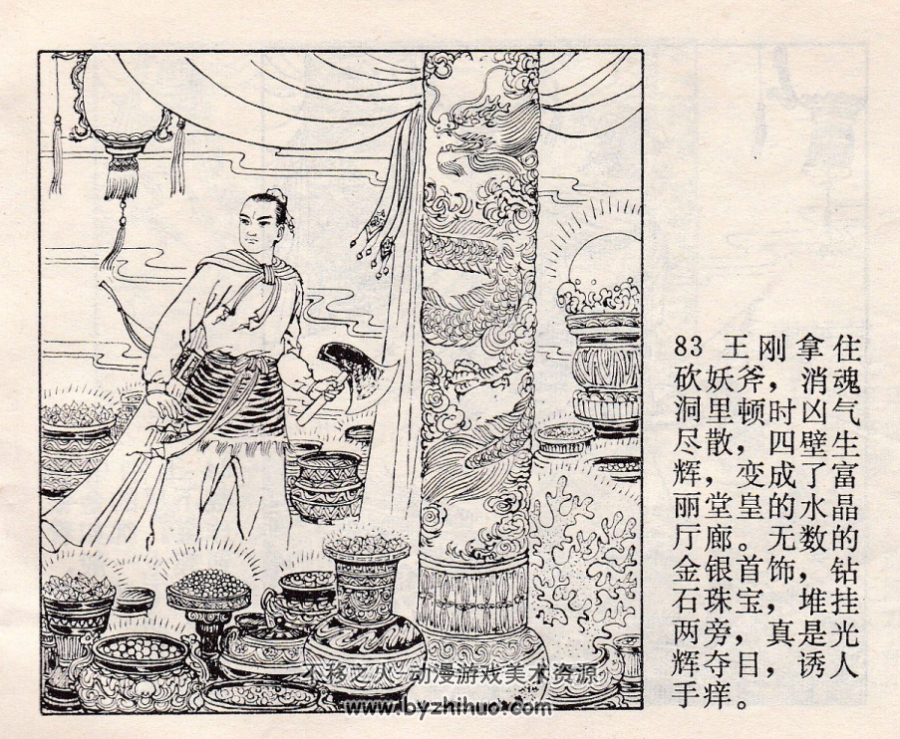 83 王刚拿住
砍妖斧，消魂
洞里顿时凶气
尽散，四壁生
辉，变成了富
丽堂皇的水晶
厅廊。无数的
金银首饰，钻
石珠宝，堆挂
两旁，真是光
辉夺目，诱人
手痒。
不移之火-动漫游戏美术资源
www.byzhihuo.com